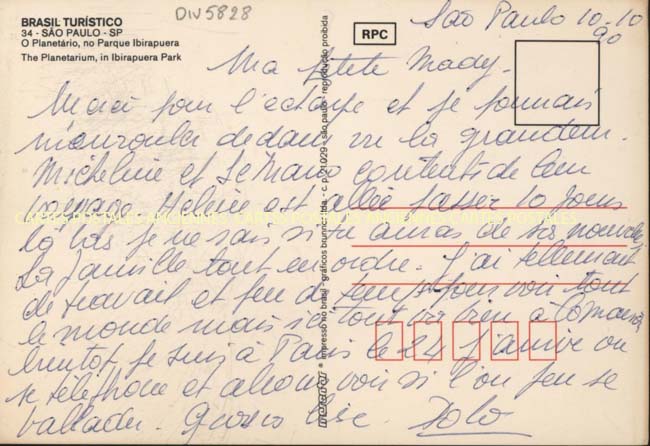 DIV5828
BRASIL TURÍSTICO
34 - SÃO PAULO - SP
O Planetário, no Parque Ibirapuera
The Planetarium, in Ibirapuera Park
RPC
São Paulo 10-10
90
Ma ptite Mady.
Merci pour l'écharpe et je pourrais
m'enrouler dedans vu la grandeur.
Micheline et contents de leur
voyage. Hélène est allée passer 10 jours
là bas je ne sais si tu auras de ses nouvelles
La famille tout en ordre. J'ai tellement
de travail et peu de temps pour voir tout
le monde mais si tout va bien à
bientôt je suis à Paris le 24 J'arrive on
se téléphone et allons voir si l'on peu se
ballader. Gros Bise. Lolo
mercador impresso no brasil - gráficos brunner ltda. - c. p. 21.029 - são paulo - reprodução proibida